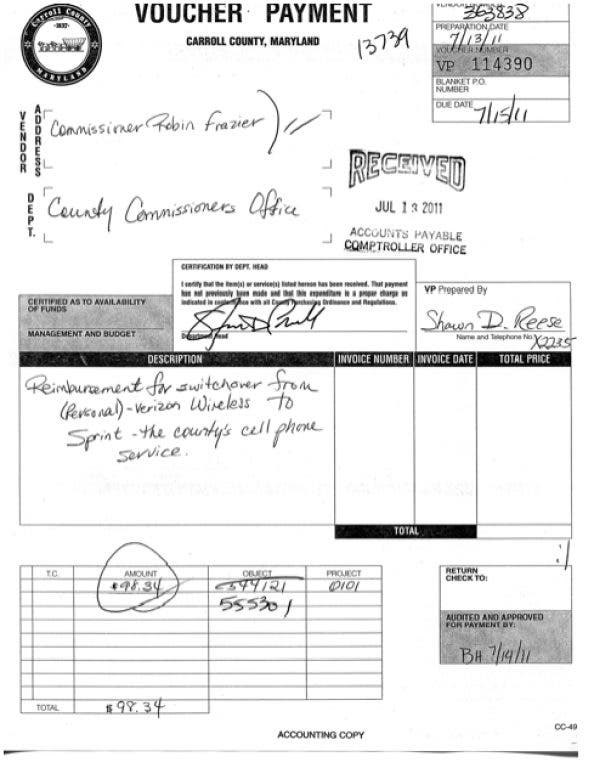 VOUCHER PAYMENT
CARROLL COUNTY, MARYLAND
13739
Carroll County
1837
MARYLAND
363838
PREPARATION DATE
7/13/11
VOUCHER NUMBER
VP 114390
BLANKET P.O.
NUMBER
DUE DATE
7/15/11
VENDOR
ADDRESS
Commissioner Robin Frazier
DEPT.
County Commissioners Office
RECEIVED
JUL 13 2011
ACCOUNTS PAYABLE
COMPTROLLER OFFICE
CERTIFICATION BY DEPT. HEAD
I certify that the item(s) or service(s) listed hereon has been received. That payment
has not previously been made and that this expenditure is a proper charge as
indicated in conformance with all County Purchasing Ordinance and Regulations.
Department Head
CERTIFIED AS TO AVAILABILITY
OF FUNDS
MANAGEMENT AND BUDGET
VP Prepared By
Shawn D. Reese
Name and Telephone No.
X2235
DESCRIPTION INVOICE NUMBER INVOICE DATE TOTAL PRICE
Reimbursement for switchover from
(Personal) - Verizon Wireless to
Sprint - the county's cell phone
service.
TOTAL
T.C. AMOUNT OBJECT PROJECT
$98.34 544121 0101
555301
TOTAL $98.34
RETURN
CHECK TO:
AUDITED AND APPROVED
FOR PAYMENT BY:
BH 7/14/11
ACCOUNTING COPY
CC-49